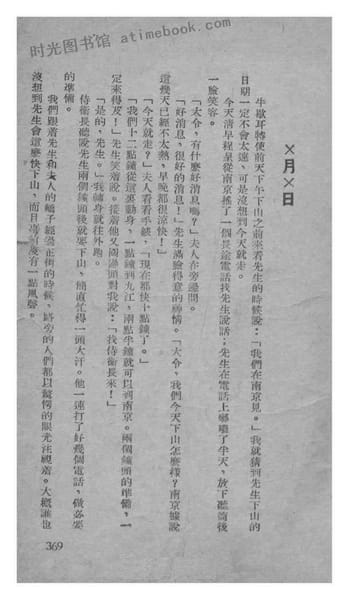 时光图书馆 atimebook.com
×月×日
牛歇耳特使前天下午下山之前來看先生的時候說：「我們在南京見。」我就猜到先生下山的
日期一定不會太遠，可是沒想到今天就走。
今天清早程某從南京搖了一個長途電話找先生說話；先生在電話上嘟囔了半天，放下聽筒後
一臉笑容。
「太令，有什麼好消息嗎？」夫人在旁邊問。
「好消息，很好的消息！」先生滿臉得意的神情。「太令，我們今天下山怎麼樣？南京據說
這幾天已經不太熱，早晚都很涼快！」
「今天就走？」夫人看看手錶，「現在都快十點鐘了。」
「我們十二點鐘從這裏動身，一點鐘到九江，兩點半鐘就可以到南京。兩個鐘頭的準備，一
定來得及！」先生笑着說。接着他又調過頭對我說：「找侍衛長來！」
「是的，先生。」我轉身就往外跑。
侍衛長聽說先生兩個鐘頭後就要下山，簡直忙得一頭大汗。他一連打了好幾個電話，做必要
的準備。
我們跟着先生和夫人的轎子經過正街的時候，路旁的人們都以驚愕的眼光注視着。大概誰也
沒想到先生會這麼快下山，而且事前沒有一點風聲。
369